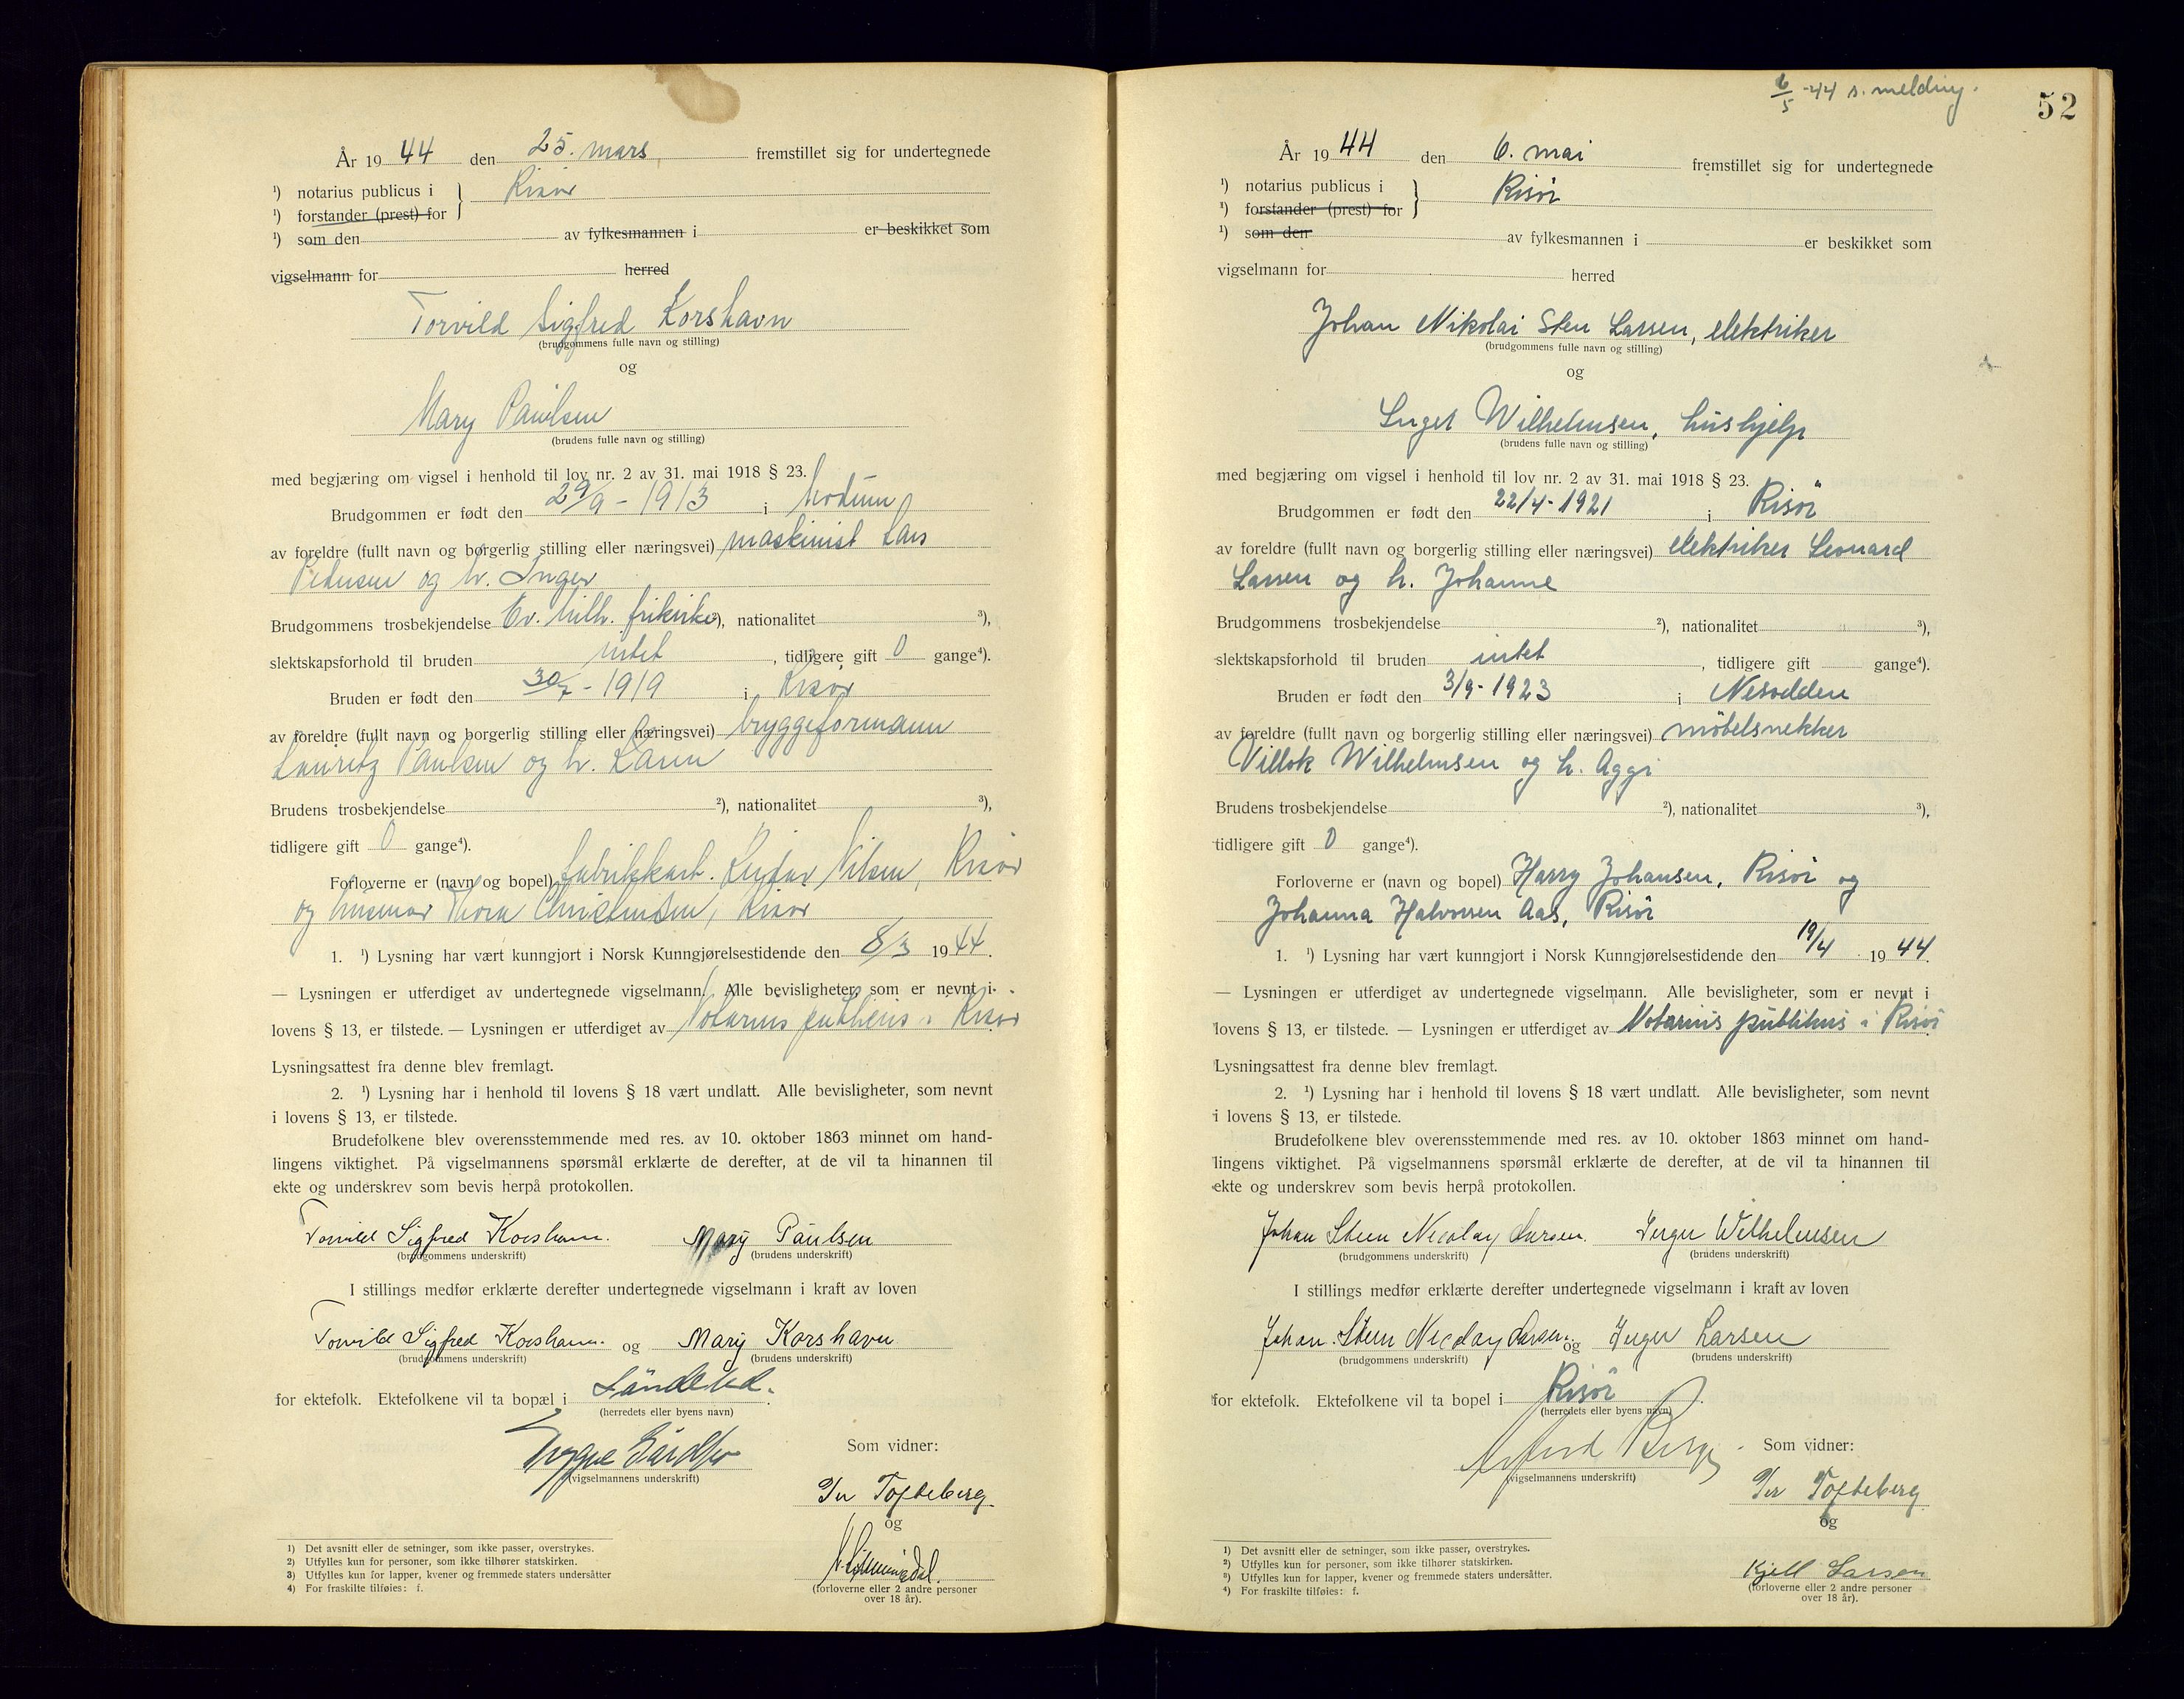 År 19 44 den 25. mars fremstillet sig for undertegnede
¹) notarius publicus i } Risør
¹) forstander (prest) for
¹) som den av fylkesmannen i er beskikket som
vigselmann for herred
Torvild Sigfred Korshavn
(brudgommens fulle navn og stilling)
og
Mary Paulsen
(brudens fulle navn og stilling)
med begjæring om vigsel i henhold til lov nr. 2 av 31. mai 1918 § 23.
Brudgommen er født den 29/9 - 1913 i Modum
av foreldre (fullt navn og borgerlig stilling eller næringsvei) maskinist Lars
Pedersen og h. Inger
Brudgommens trosbekjendelse Ev. luth. frikirke ²), nationalitet ³),
slektskapsforhold til bruden intet, tidligere gift 0 gange⁴).
Bruden er født den 30/7 - 1919 i Risør
av foreldre (fullt navn og borgerlig stilling eller næringsvei) bryggeformann
Lauritz Paulsen og h. Karen
Brudens trosbekjendelse ²), nationalitet ³),
tidligere gift 0 gange⁴).
Forloverne er (navn og bopel) fabrikkarb. Nilsen, Risør
og husmor Thora Christensen, Risør
1. ¹) Lysning har vært kunngjort i Norsk Kunngjørelsestidende den 8/3 19 44.
— Lysningen er utferdiget av undertegnede vigselmann. Alle bevisligheter, som er nevnt i
lovens § 13, er tilstede. — Lysningen er utferdiget av Notarius publicus i Risør
Lysningsattest fra denne blev fremlagt.
2. ¹) Lysning har i henhold til lovens § 18 vært undlatt. Alle bevisligheter, som nevnt
i lovens § 13, er tilstede.
Brudefolkene blev overensstemmende med res. av 10. oktober 1863 minnet om hand-
lingens viktighet. På vigselmannens spørsmål erklærte de derefter, at de vil ta hinannen til
ekte og underskrev som bevis herpå protokollen.
Torvild Sigfred Korshavn. Mary Paulsen
(brudgommens underskrift) (brudens underskrift)
I stillings medfør erklærte derefter undertegnede vigselmann i kraft av loven
Torvild Sigfred Korshavn. og Mary Korshavn
(brudgommens underskrift) (brudens underskrift)
for ektefolk. Ektefolkene vil ta bopæl i Søndeled.
(herredets eller byens navn)
(vigselmannens underskrift)
Som vidner:
Per Tofteberg.
og
(forloverne eller 2 andre personer
over 18 år).
1) Det avsnitt eller de setninger, som ikke passer, overstrykes.
2) Utfylles kun for personer, som ikke tilhører statskirken.
3) Utfylles kun for lapper, kvener og fremmede staters undersåtter
4) For fraskilte tilføies: f.
6/5 -44 s. melding.
52
År 19 44 den 6. mai fremstillet sig for undertegnede
¹) notarius publicus i } Risør
¹) forstander (prest) for
¹) som den av fylkesmannen i er beskikket som
vigselmann for herred
Johan Nikolai Sten Larsen, elektriker
(brudgommens fulle navn og stilling)
og
Inger Wilhelmsen, hushjelp
(brudens fulle navn og stilling)
med begjæring om vigsel i henhold til lov nr. 2 av 31. mai 1918 § 23.
Brudgommen er født den 22/4 - 1921 i Risör
av foreldre (fullt navn og borgerlig stilling eller næringsvei) elektriker Leonard
Larsen og h. Johanne
Brudgommens trosbekjendelse ²), nationalitet ³),
slektskapsforhold til bruden intet, tidligere gift gange⁴).
Bruden er født den 3/9 - 1923 i Nesodden
av foreldre (fullt navn og borgerlig stilling eller næringsvei) möbelsnekker
Villok Wilhelmsen og h. Aggi
Brudens trosbekjendelse ²), nationalitet ³),
tidligere gift 0 gange⁴).
Forloverne er (navn og bopel) Harry Johansen, Risör og
Johanna Halvorsen Aas, Risör
1. ¹) Lysning har vært kunngjort i Norsk Kunngjørelsestidende den 19/4 19 44.
— Lysningen er utferdiget av undertegnede vigselmann. Alle bevisligheter, som er nevnt i
lovens § 13, er tilstede. — Lysningen er utferdiget av Notarius publikus i Risör
Lysningsattest fra denne blev fremlagt.
2. ¹) Lysning har i henhold til lovens § 18 vært undlatt. Alle bevisligheter, som nevnt
i lovens § 13, er tilstede.
Brudefolkene blev overensstemmende med res. av 10. oktober 1863 minnet om hand-
lingens viktighet. På vigselmannens spørsmål erklærte de derefter, at de vil ta hinannen til
ekte og underskrev som bevis herpå protokollen.
Johan Steen Nicolay Larsen. Inger Wilhelmsen
(brudgommens underskrift) (brudens underskrift)
I stillings medfør erklærte derefter undertegnede vigselmann i kraft av loven
Johan Steen Nicolay Larsen. og Inger Larsen
(brudgommens underskrift) (brudens underskrift)
for ektefolk. Ektefolkene vil ta bopel i Risör.
(herredets eller byens navn)
(vigselmannens underskrift)
Som vidner:
Per Tofteberg
og
Kjell Larsen
(forloverne eller 2 andre personer
over 18 år).
1) Det avsnitt eller de setninger, som ikke passer, overstrykes.
2) Utfylles kun for personer, som ikke tilhører statskirken.
3) Utfylles kun for lapper, kvener og fremmede staters undersåtter.
4) For fraskilte tilføies: f.